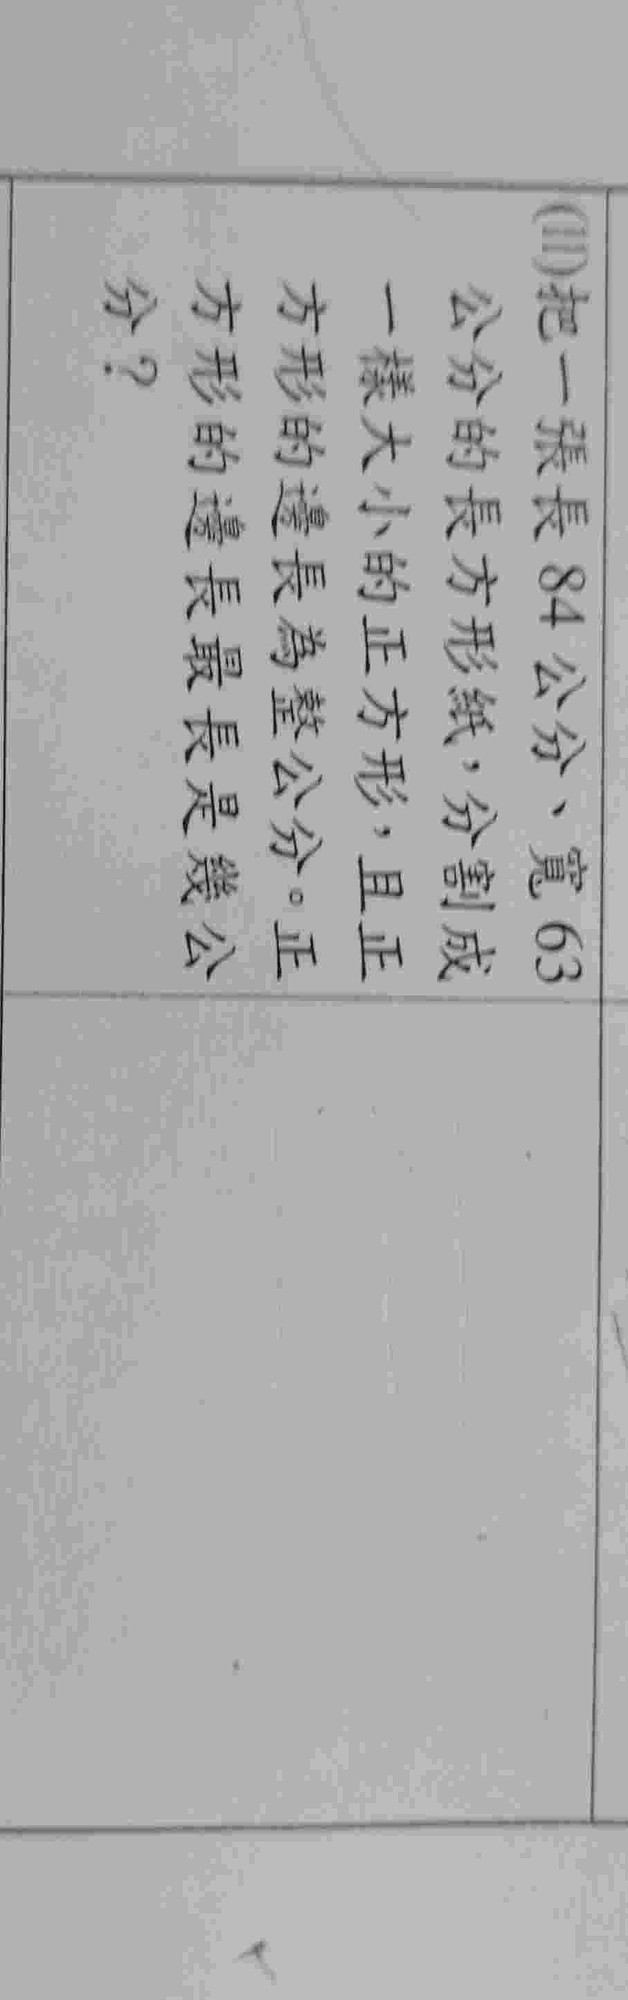 (11)把一張長 84 公分、寬 63
公分的長方形紙,分割成
一樣大小的正方形,且正
方形的邊長為整公分。正
方形的邊長最長是幾公
分?